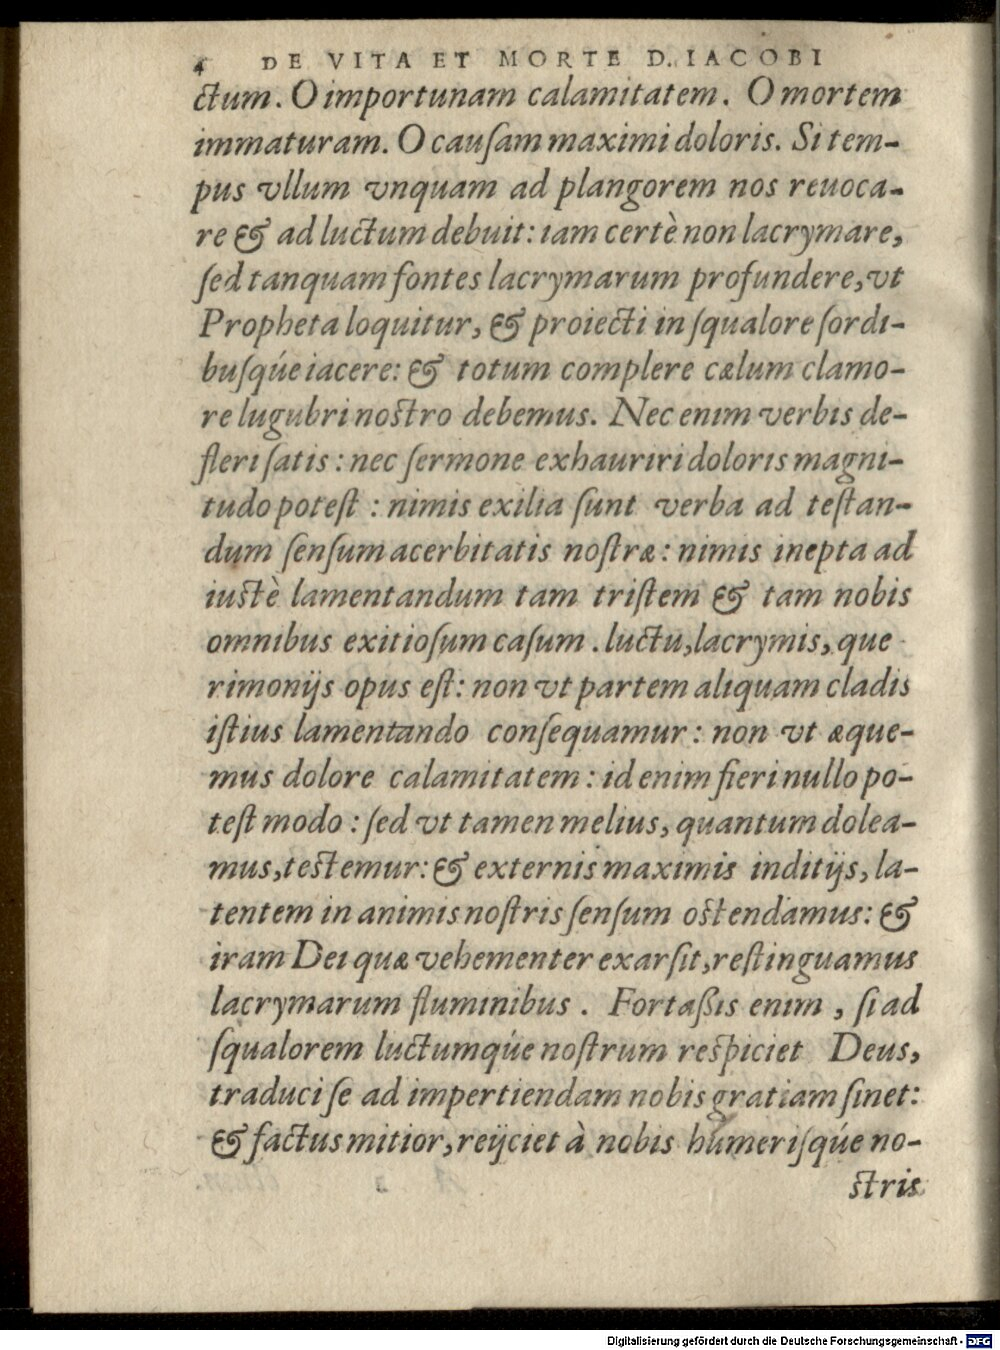 4 DE VITA ET MORTE D. IACOBI
ctum. O importunam calamitatem. O mortem
immaturam. O cauſam maximi doloris. Si tem-
pus vllum vnquam ad plangorem nos reuoca-
re & ad luctum debuit: iam certè non lacrymare,
ſed tanquam fontes lacrymarum profundere, vt
Propheta loquitur, & proiecti in ſqualore ſordi-
buſq́ue iacere: & totum complere cælum clamo-
re lugubri noſtro debemus. Nec enim verbis de-
fleri ſatis: nec ſermone exhauriri doloris magni-
tudo poteſt: nimis exilia ſunt verba ad teſtan-
dum ſenſum acerbitatis noſtræ: nimis inepta ad
iuſtè lamentandum tam triſtem & tam nobis
omnibus exitioſum caſum. luctu, lacrymis, que
rimonijs opus eſt: non vt partem aliquam cladis
iſtius lamentando conſequamur: non vt æque-
mus dolore calamitatem: id enim fieri nullo po-
teſt modo: ſed vt tamen melius, quantum dolea-
mus, teſtemur: & externis maximis inditijs, la-
tentem in animis noſtris ſenſum oſtendamus: &
iram Dei quæ vehementer exarſit, reſtinguamus
lacrymarum fluminibus. Fortaßis enim, ſi ad
ſqualorem luctumq́ue noſtrum reſpiciet Deus,
traduci ſe ad impertiendam nobis gratiam ſinet:
& factus mitior, reijciet à nobis humeriſq́ue no-
ſtris
Digitalisierung gefördert durch die Deutsche Forschungsgemeinschaft - DFG